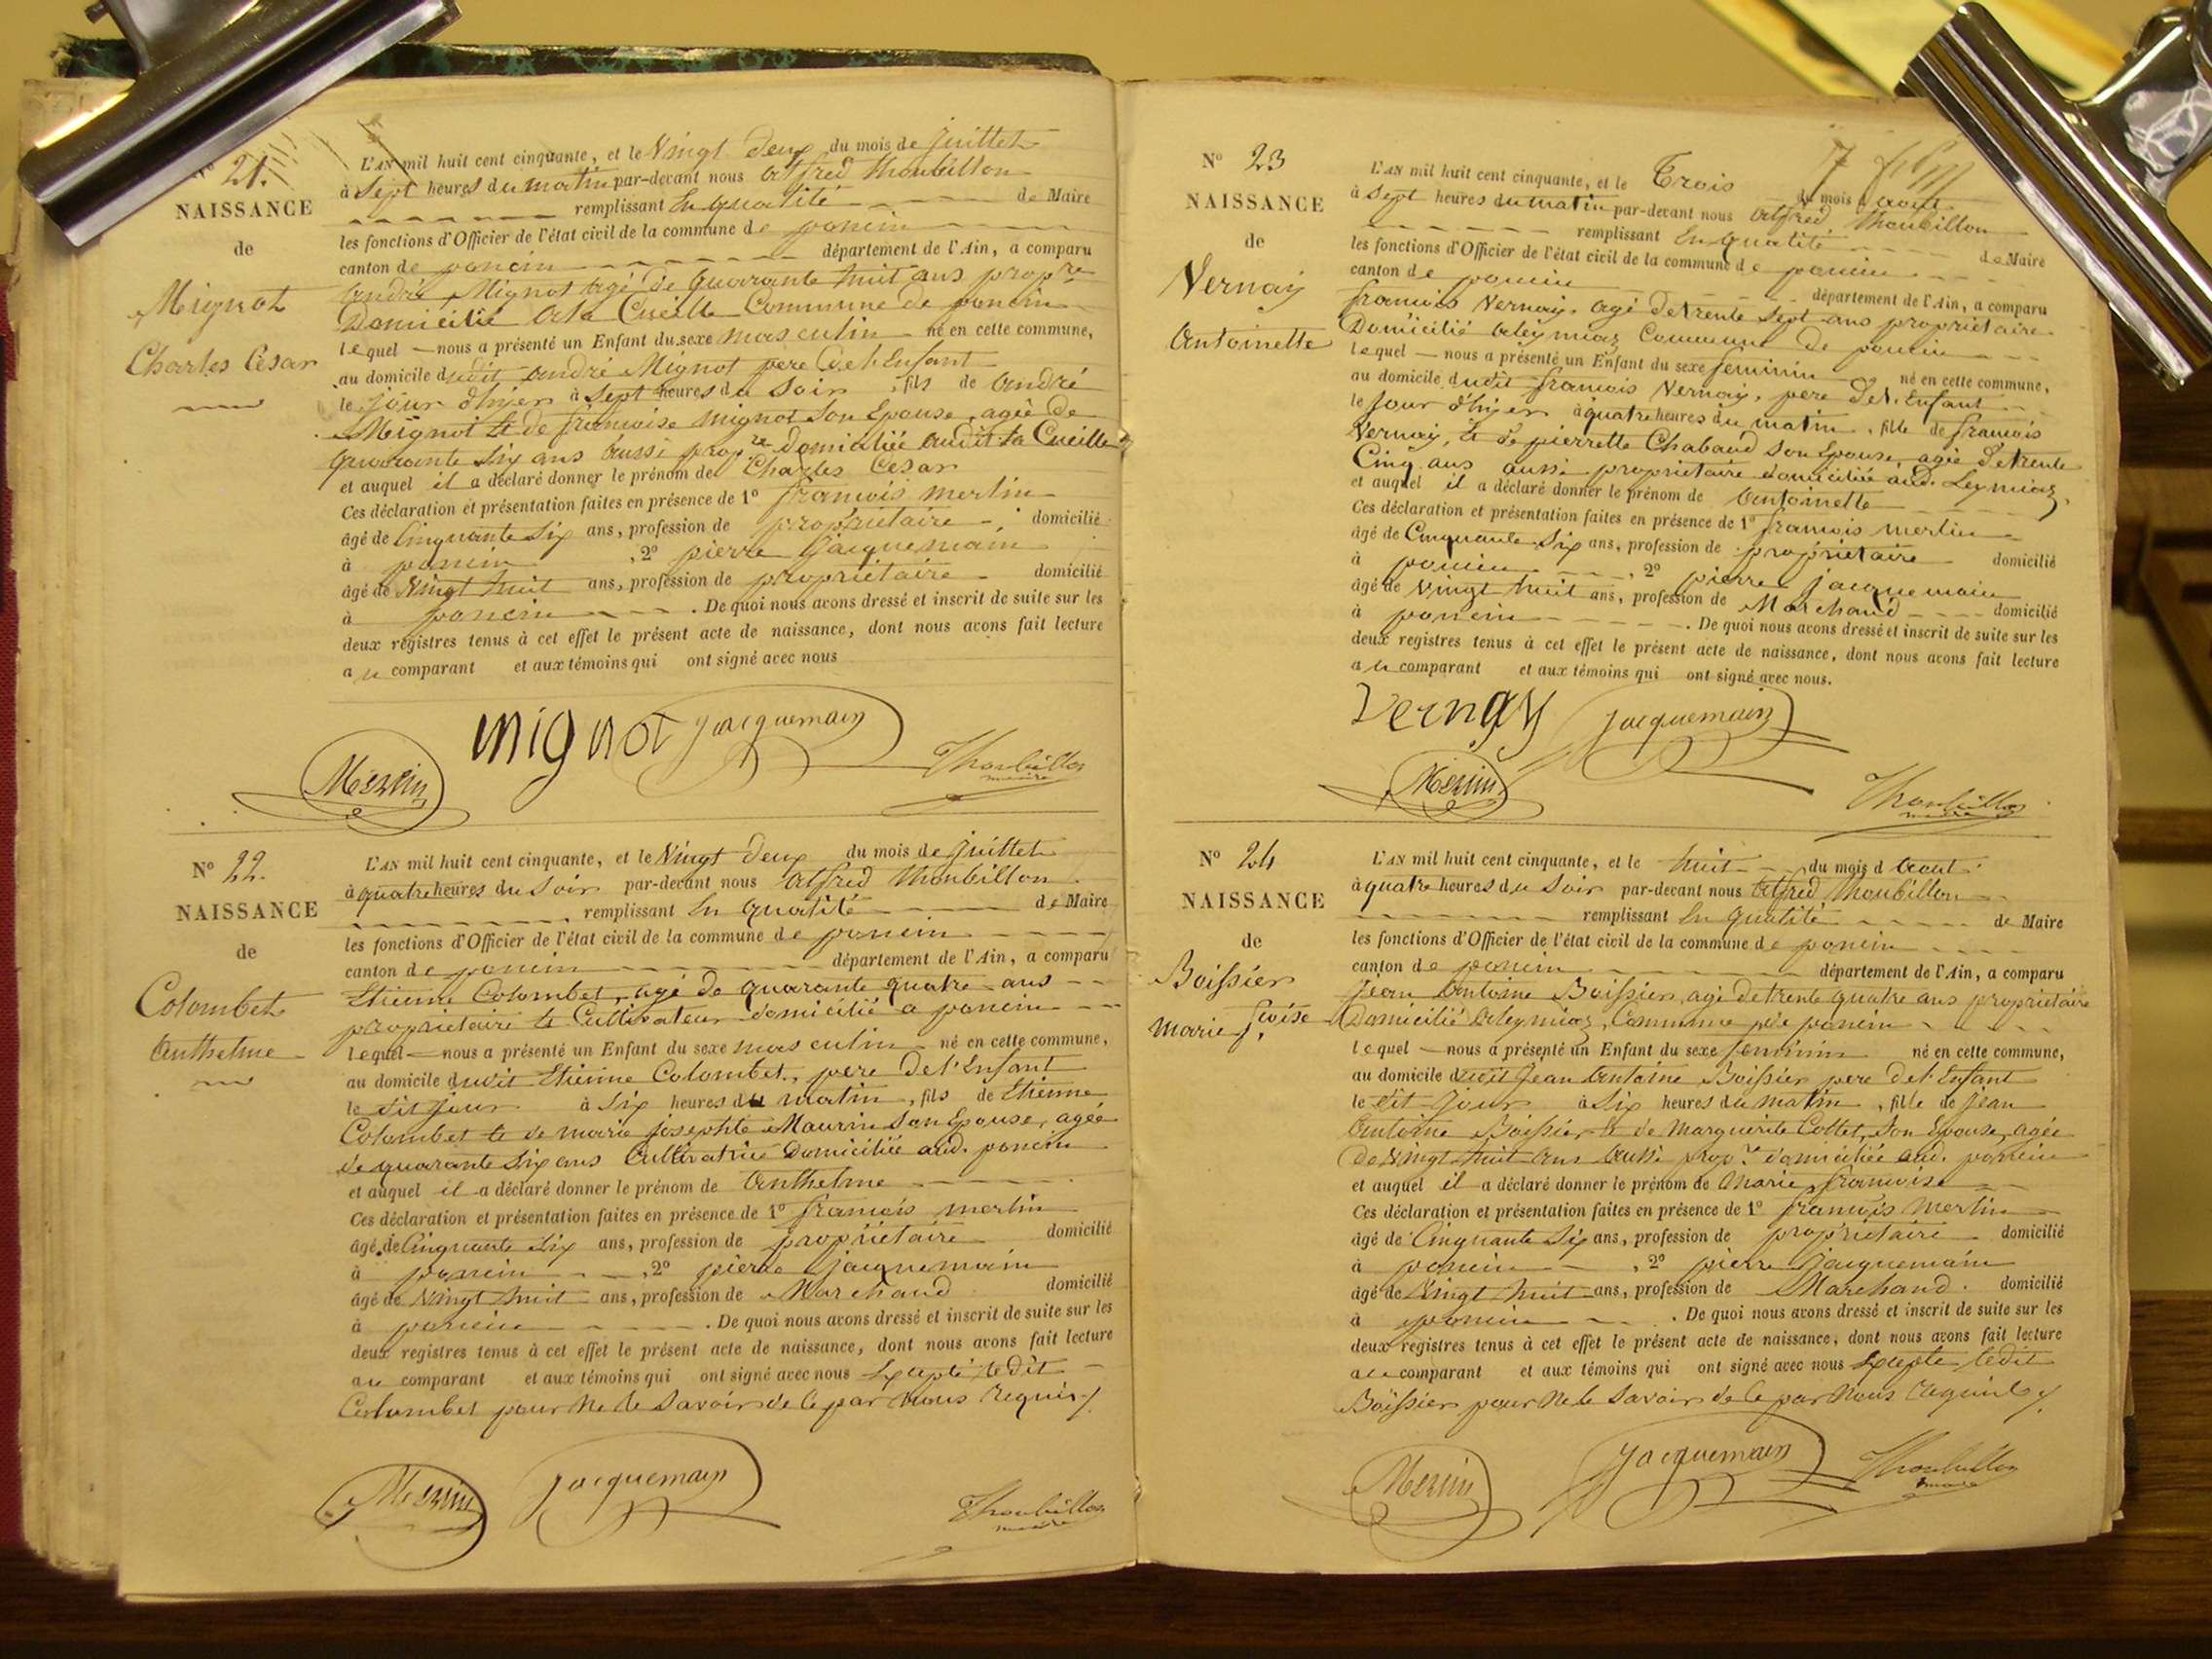 N° 21.
NAISSANCE
de
Mignot
Charles César
L'AN mil huit cent cinquante, et le Vingt deux du mois de juillet
à Sept heures du matin par-devant nous Alfred Thoubillon
remplissant En qualité de Maire
les fonctions d'Officier de l'état civil de la commune de poncin
canton de poncin département de l'Ain, a comparu
André Mignot agé de quarante huit ans prop.re
Domicilié à la Cueille Commune de poncin
lequel nous a présenté un Enfant du sexe masculin né en cette commune,
au domicile dudit andré Mignot pere de l'Enfant
le jour d'hyer à Sept heures du Soir, fils de André
Mignot & de francoise mignot Son Epouse, agée de
quarante Six ans aussi prop.re Domiciliée audit la Cueille
et auquel il a déclaré donner le prénom de Charles César
Ces déclaration et présentation faites en présence de 1° francois merlin
âgé de Cinquante Six ans, profession de propriétaire domicilié
à poncin, 2° pierre Jacquemain
âgé de Vingt huit ans, profession de propriétaire domicilié
à poncin. De quoi nous avons dressé et inscrit de suite sur les
deux registres tenus à cet effet le présent acte de naissance, dont nous avons fait lecture
au comparant et aux témoins qui ont signé avec nous
mignot Jacquemain
Merlin Thoubillon
maire
N° 22.
NAISSANCE
de
Colombet
Anthelme
L'AN mil huit cent cinquante, et le Vingt deux du mois de juillet
à quatre heures du Soir par-devant nous Alfred Thoubillon
remplissant En qualité de Maire
les fonctions d'Officier de l'état civil de la commune de poncin
canton de poncin département de l'Ain, a comparu
Etienne Colombet, agé de quarante quatre ans
propriétaire & Cultivateur domicilié a poncin
lequel nous a présenté un Enfant du sexe masculin né en cette commune,
au domicile dudit Etienne Colombet, pere de l'Enfant
le dit jour à Six heures du matin, fils de Etienne
Colombet & de marie josephte Maurin Son Epouse, agée
de quarante Six ans Cultivatrice Domiciliée aud. poncin
et auquel il a déclaré donner le prénom de Anthelme
Ces déclaration et présentation faites en présence de 1° francois merlin
âgé de Cinquante Six ans, profession de propriétaire domicilié
à poncin, 2° pierre jacquemain
âgé de Vingt huit ans, profession de Marchand domicilié
à poncin. De quoi nous avons dressé et inscrit de suite sur les
deux registres tenus à cet effet le présent acte de naissance, dont nous avons fait lecture
au comparant et aux témoins qui ont signé avec nous Excepté ledit
Colombet pour ne le Savoir de ce par nous requis
Merlin Jacquemain Thoubillon
maire
N° 23
NAISSANCE
de
Vernay
Antoinette
L'AN mil huit cent cinquante, et le Trois du mois d'aout
à Sept heures du matin par-devant nous Alfred Thoubillon
remplissant En qualité de Maire
les fonctions d'Officier de l'état civil de la commune de poncin
canton de poncin département de l'Ain, a comparu
francois Vernay, agé de trente Sept ans propriétaire
Domicilié à leymiaz Commune de poncin
lequel nous a présenté un Enfant du sexe feminin né en cette commune,
au domicile dudit francois Vernay, pere de l'Enfant
le Jour d'hyer à quatre heures du matin, fille de francois
Vernay, & de pierrette Chabaud son Epouse, agée de trente
Cinq ans aussi propriétaire domiciliée aud. Leymiaz,
et auquel il a déclaré donner le prénom de Antoinette
Ces déclaration et présentation faites en présence de 1° francois merlin
âgé de Cinquante Six ans, profession de propriétaire domicilié
à poncin, 2° pierre jacquemain
âgé de Vingt huit ans, profession de Marchand domicilié
à poncin. De quoi nous avons dressé et inscrit de suite sur les
deux registres tenus à cet effet le présent acte de naissance, dont nous avons fait lecture
au comparant et aux témoins qui ont signé avec nous.
Vernay Jacquemain
Merlin Thoubillon
maire
N° 24
NAISSANCE
de
Boissier
marie f.çoise
L'AN mil huit cent cinquante, et le huit du mois d aout
à quatre heures du Soir par-devant nous Alfred Thoubillon
remplissant En qualité de Maire
les fonctions d'Officier de l'état civil de la commune de poncin
canton de poncin département de l'Ain, a comparu
Jean Antoine Boissier agé de trente quatre ans propriétaire
Domicilié à leymiaz, Commune de poncin
lequel nous a présenté un Enfant du sexe feminin né en cette commune,
au domicile dudit Jean Antoine Boissier pere de l'Enfant
le dit jour à Six heures du matin, fille de Jean
Antoine Boissier & de Marguerite Collet, Son Epouse, agée
de Vingt huit ans aussi prop.re domiciliée aud. poncin
et auquel il a déclaré donner le prénom de Marie francoise
Ces déclaration et présentation faites en présence de 1° francois Merlin
âgé de Cinquante Six ans, profession de propriétaire domicilié
à poncin, 2° pierre jacquemain
âgé de Vingt huit ans, profession de Marchand. domicilié
à poncin. De quoi nous avons dressé et inscrit de suite sur les
deux registres tenus à cet effet le présent acte de naissance, dont nous avons fait lecture
au comparant et aux témoins qui ont signé avec nous Excepté ledit
Boissier pour ne le Savoir de ce par nous requis
Merlin Jacquemain Thoubillon
maire